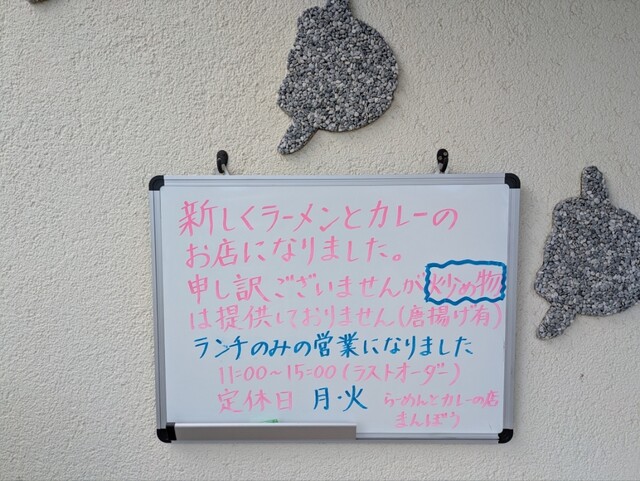 新しくラーメンとカレーの
お店になりました。
申し訳ございませんが炒め物
は提供しておりません(唐揚げ有)
ランチのみの営業になりました
11:00~15:00(ラストオーダー)
定休日 月・火 らーめんとカレーの店
まんぼう